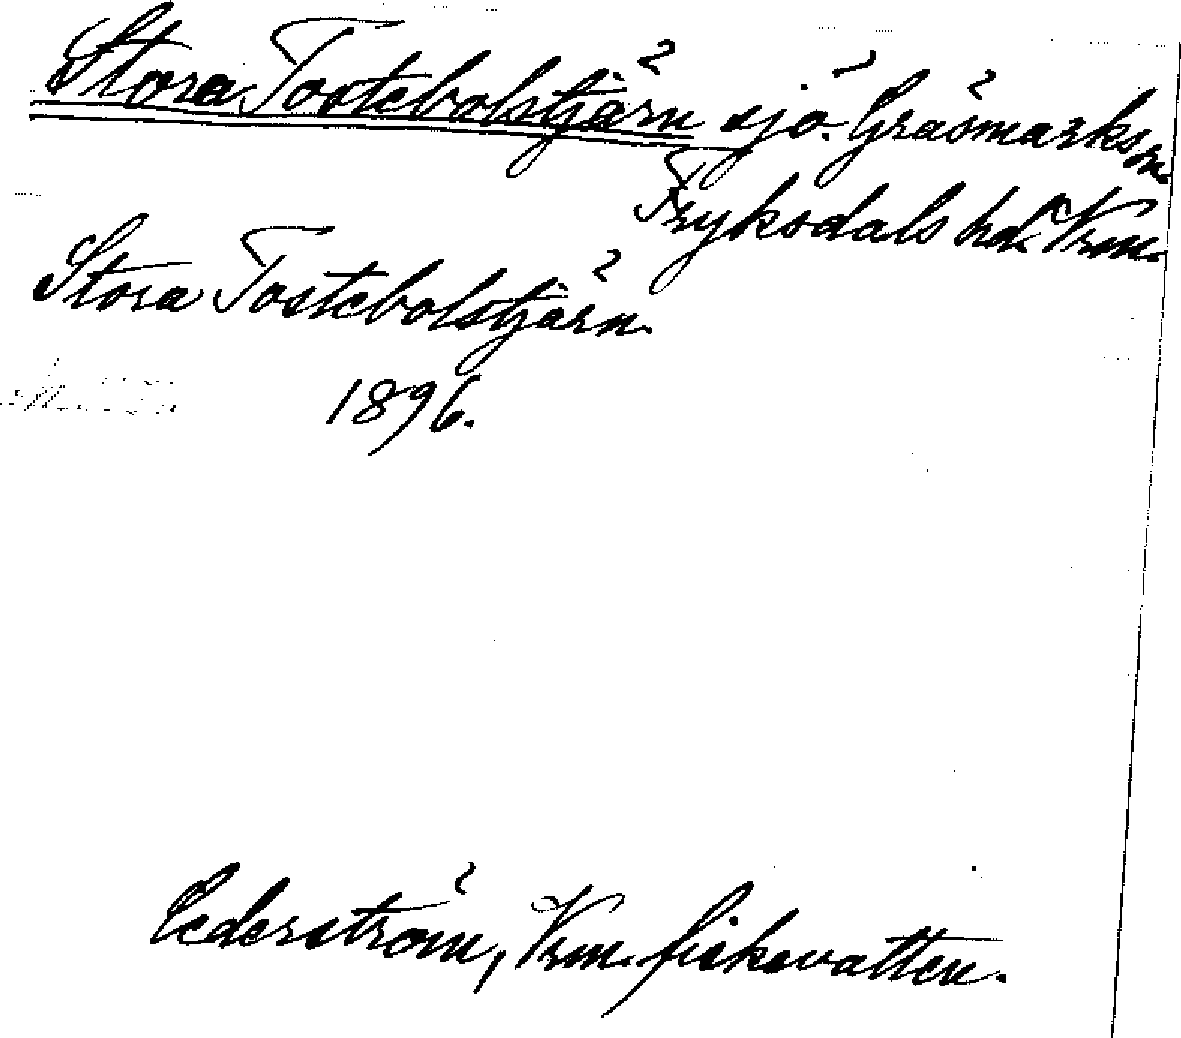 Stora Tostebolstjärn sjö. Gräsmarks sn.
Fryksdals hd. Vrm.
Stora Tostebolstjärn.
1896.
Cederström, Vrm. fiskevatten.